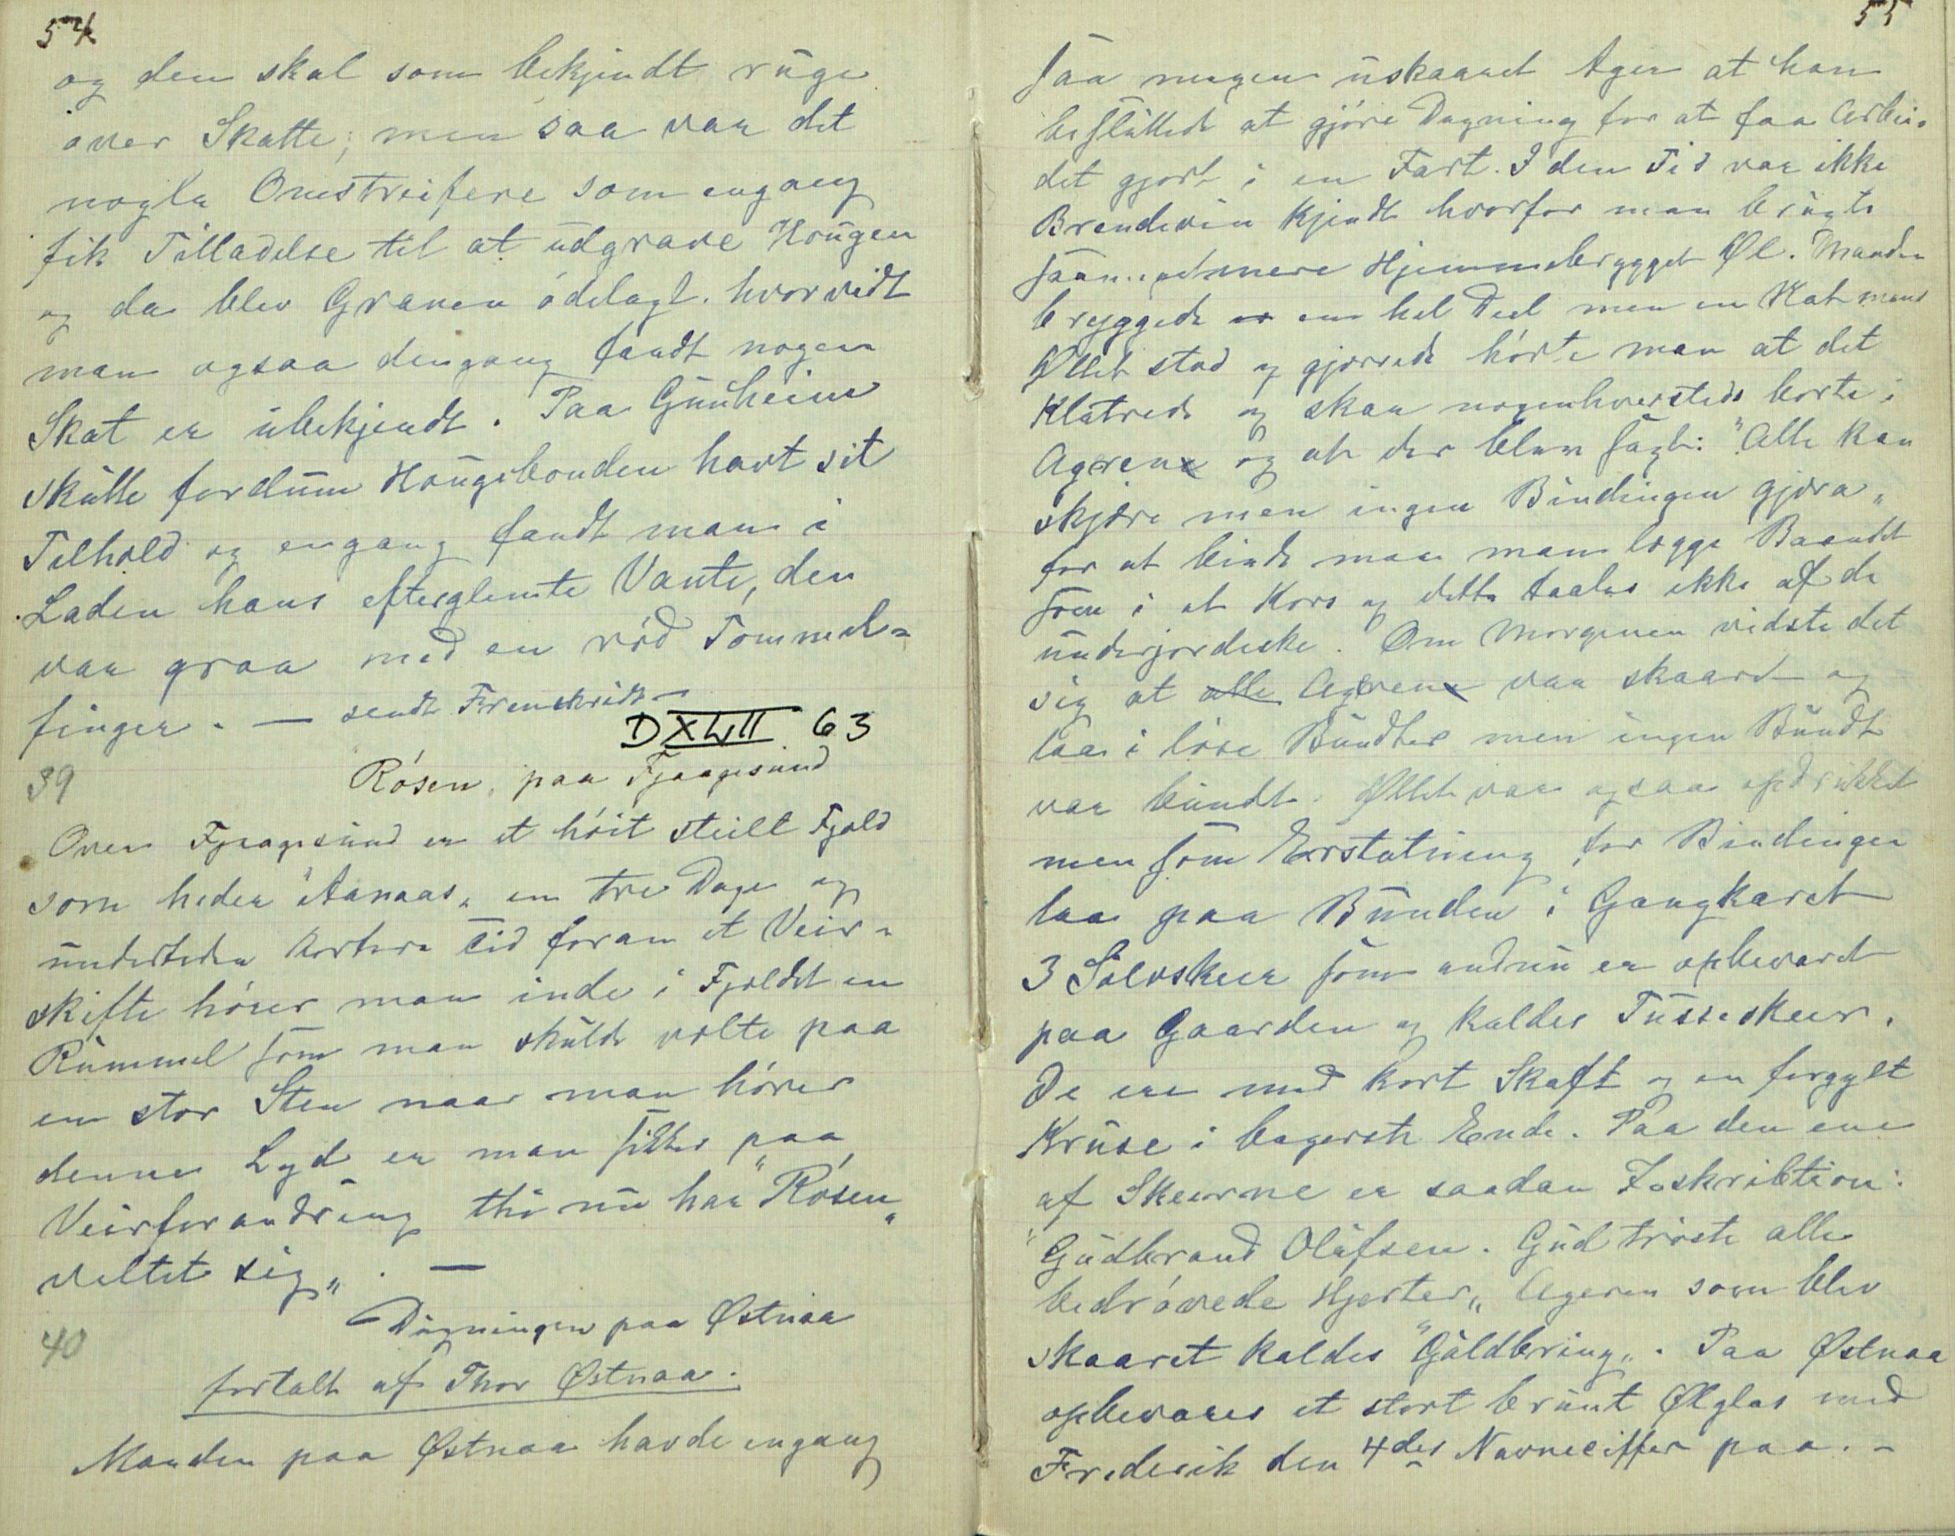 54
og den skal som bekjendt ruge
over Skatte; men saa var det
nogle Omstreifere som engang
fik Tilladelse til at udgrave Hougen
og da blev Graven ódelagt. hvorvidt
man ogsaa dengang fandt nogen
Skat er ubekjendt. Paa Gunheim
skulle fordum Hougebonden havt sit
Tilhold og engang fandt man i
Laden hans efterglemte Vante, den
var graa med en ród Tommel-
finger. — sendt Fremskridt —
DXLVII 63
39
Rósen, paa Fjaagesund
Over Fjaagesund er et hóit steilt Fjeld
som heder "Aanaas„ en tre Dage og
undertiden kortere Tid foran et Veir-
skifte hórer man inde i Fjeldet en
Rummel som man skulde vælte paa
en stor Sten naar man hórer
denne Lyd er man sikker paa
Veirforandring thi nu har "Rósen„
veltet sig„. —
40
Dugningen paa Østnaa
fortalt af Thor Østnaa.
Manden paa Østnaa havde engang
55
saa megen uskaaret Ager at han
besluttede at gjóre Dugning for at faa Arbei-
det gjort i en Fart. I den Tid var ikke
Brendevin kjendt hvorfor man brugte
saameget mere Hjemmebrygget Øl. Manden
bryggede en hel Deel men en Nat mens
Øllet stod og gjærede hórte man at det
klatrede og skar nogenhversteds borte i
Ageren og at der blev sagt: "Alle kan
skjære men ingen Bindingen gjøra„
for at binde maa man lægge Baandet
som i et Kors og dette taales ikke af de
underjordiske. Om Morgenen vidste det
sig at alle Ageren var skaaret og
laa i lóse Bundter men ingen Bundt
var bundt. Øllet var ogsaa opdrukket
men som Erstatning for Bindingen
laa paa Bunden i Gangkaret
3 Sølvskeer som endnu er opbevaret
paa Gaarden og kaldes Tusseskeer.
De ere med kort Skaft og en forgylt
Kruse i bagerste Ende. Paa den ene
af Skeerne er saadan Inskribtion:
"Gudbrand Olufsen. Gud trøste alle
bedróvede Hjerter„ Ageren som blev
skaaret kaldes "Guldbring„. Paa Østnaa
opbevares et stort brunt Ølglas med
Frederik den 4des Navneciffer paa. –